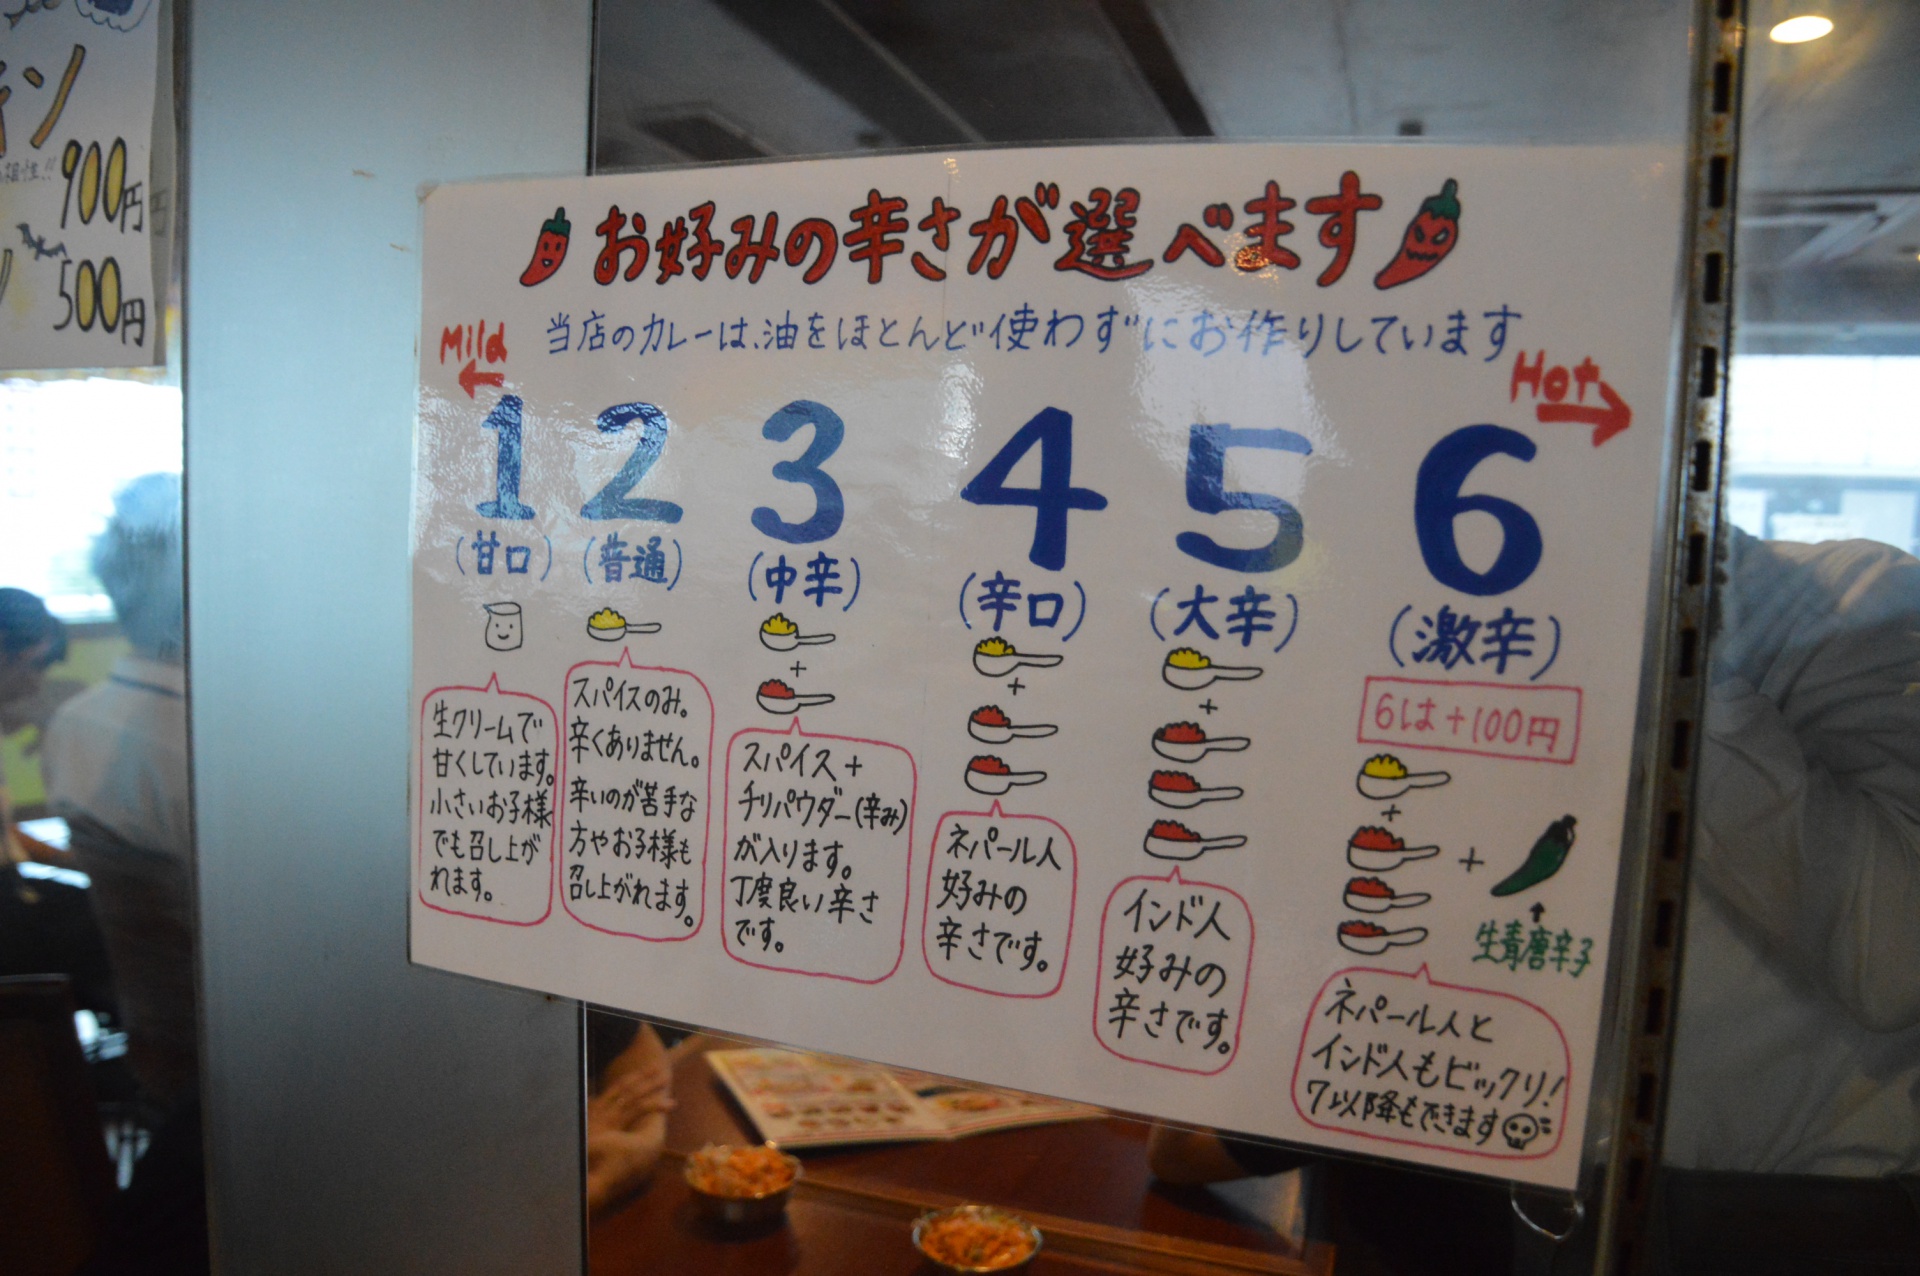 ン
相性!!
900円
500円
お好みの辛さが選べます
当店のカレーは、油をほとんど"使わず"にお作りしています
Mild
Hot
1
(甘口)
生クリームで
甘くしています。
小さいお子様
でも召し上が
れます。
2
(普通)
スパイスのみ。
辛くありません。
辛いのが苦手な
方やお子様も
召し上がれます。
3
(中辛)
+
スパイス+
チリパウダー(辛み)
が入ります。
丁度良い辛さ
です。
4
(辛口)
+
ネパール人
好みの
辛さです。
5
(大辛)
+
インド人
好みの
辛さです。
6
(激辛)
6は+100円
+
+
生青唐辛子
ネパール人と
インド人もビックリ!
7以降もできます